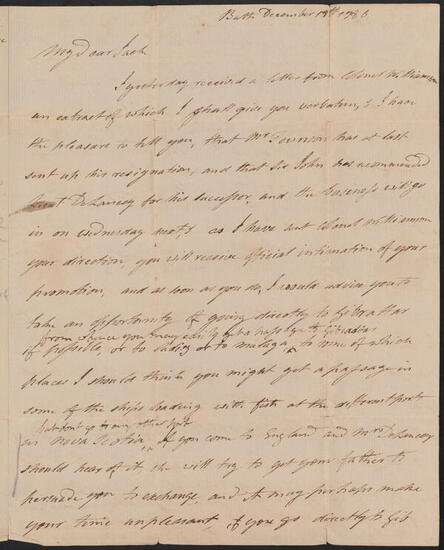 Bath December 18th 1786
My Dear Jack
I yesterday received a letter from Colonel Williamson
an extract of which I shall give you verbatim, & I have
the pleasure to tell you, that Mr Townson has at last
sent up his resignation, and that Sir John has recommended
Lieut DeLancey for his successor, and the business will go
in on wednesday next, & as I have sent Colonel Williamson
your direction, you will receive official intimation of your
promotion, and as soon as you do, I would advise you to
take an opportunity of going directly to Gibraltar
from whence you may easily get a passage to Gibraltar
if possible, or to Cadiz or to Malaga, to some of which
places I should think you might get a passage in
some of the ships loading with fish at the different ports
but dont go to any other port
in Nova Scotia, If you come to England and Mrs DeLancey
should hear of it she will try to get your father to
persuade you to exchange, and it may perhaps make
your time unpleasant, if you go directly to Gib